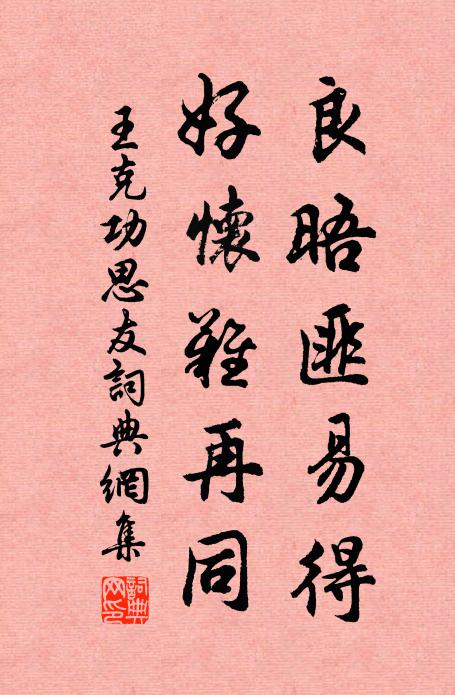 良晤匪易得
好懷難再同
王克功思友詞典網集
詞典网印